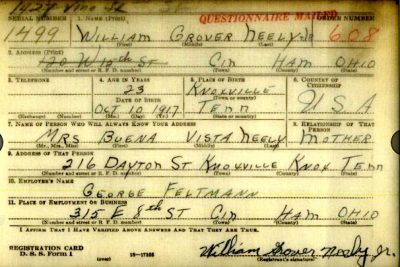 1427 Vine St
QUESTIONNAIRE MAILED
SERIAL NUMBER 1. NAME (Print) ORDER NUMBER
1499 WILLIAM GROVER NEELY JR 608
(First) (Middle) (Last)
2. ADDRESS (Print)
120 W 15th ST CIN HAM OHIO
(Number and street or R. F. D. number) (Town) (County) (State)
3. TELEPHONE 4. AGE IN YEARS 5. PLACE OF BIRTH 6. COUNTRY OF CITIZENSHIP
23 KNOXVILLE
DATE OF BIRTH (Town or county)
OCT 10 1917 TENN U S A
(Exchange) (Number) (Mo.) (Day) (Yr.) (State or country)
7. NAME OF PERSON WHO WILL ALWAYS KNOW YOUR ADDRESS 8. RELATIONSHIP OF THAT PERSON
MRS BUENA VISTA NEELY MOTHER
(Mr., Mrs., Miss) (First) (Middle) (Last)
9. ADDRESS OF THAT PERSON
216 DAYTON ST KNOXVILLE KNOX TENN
(Number and street or R. F. D. number) (Town) (County) (State)
10. EMPLOYER'S NAME
GEORGE FELTMANN
11. PLACE OF EMPLOYMENT OR BUSINESS
315 E 8th ST CIN HAM OHIO
(Number and street or R. F. D. number) (Town) (County) (State)
I AFFIRM THAT I HAVE VERIFIED ABOVE ANSWERS AND THAT THEY ARE TRUE.
REGISTRATION CARD
D. S. S. Form 1 William Grover Neely Jr.
(Registrant's signature)